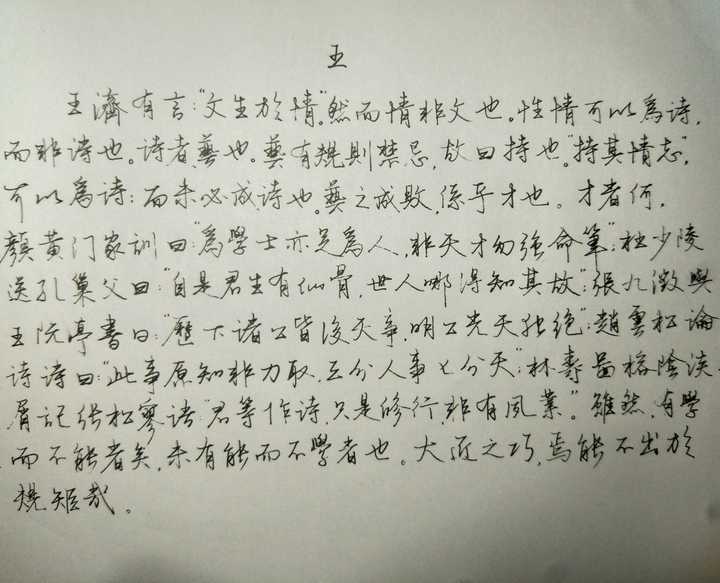 五
王濟有言:“文生於情。”然而情非文也。性情可以為诗,
而非诗也。诗者藝也。藝有規則禁忌,故曰持也。“持其情志”,
可以為诗;而未必成诗也。藝之成敗,係乎才也。才者何,
顏黃门家訓曰:“為學士亦足為人,非天才勿強命筆”;杜少陵
送孔巢父曰:“自是君生有仙骨,世人哪得知其故”;張九徵與
王阮亭書曰:“歷下诸公皆後天事,明公先天独绝”;趙雲松論
诗诗曰:“此事原知非力取,三分人事七分天”;林壽圖榕陰談
屑記张松寥语:“君等作诗,只是修行,非有風業。”雖然,有學
而不能者矣,未有能而不學者也。大匠之巧,焉能不出於
規矩哉。